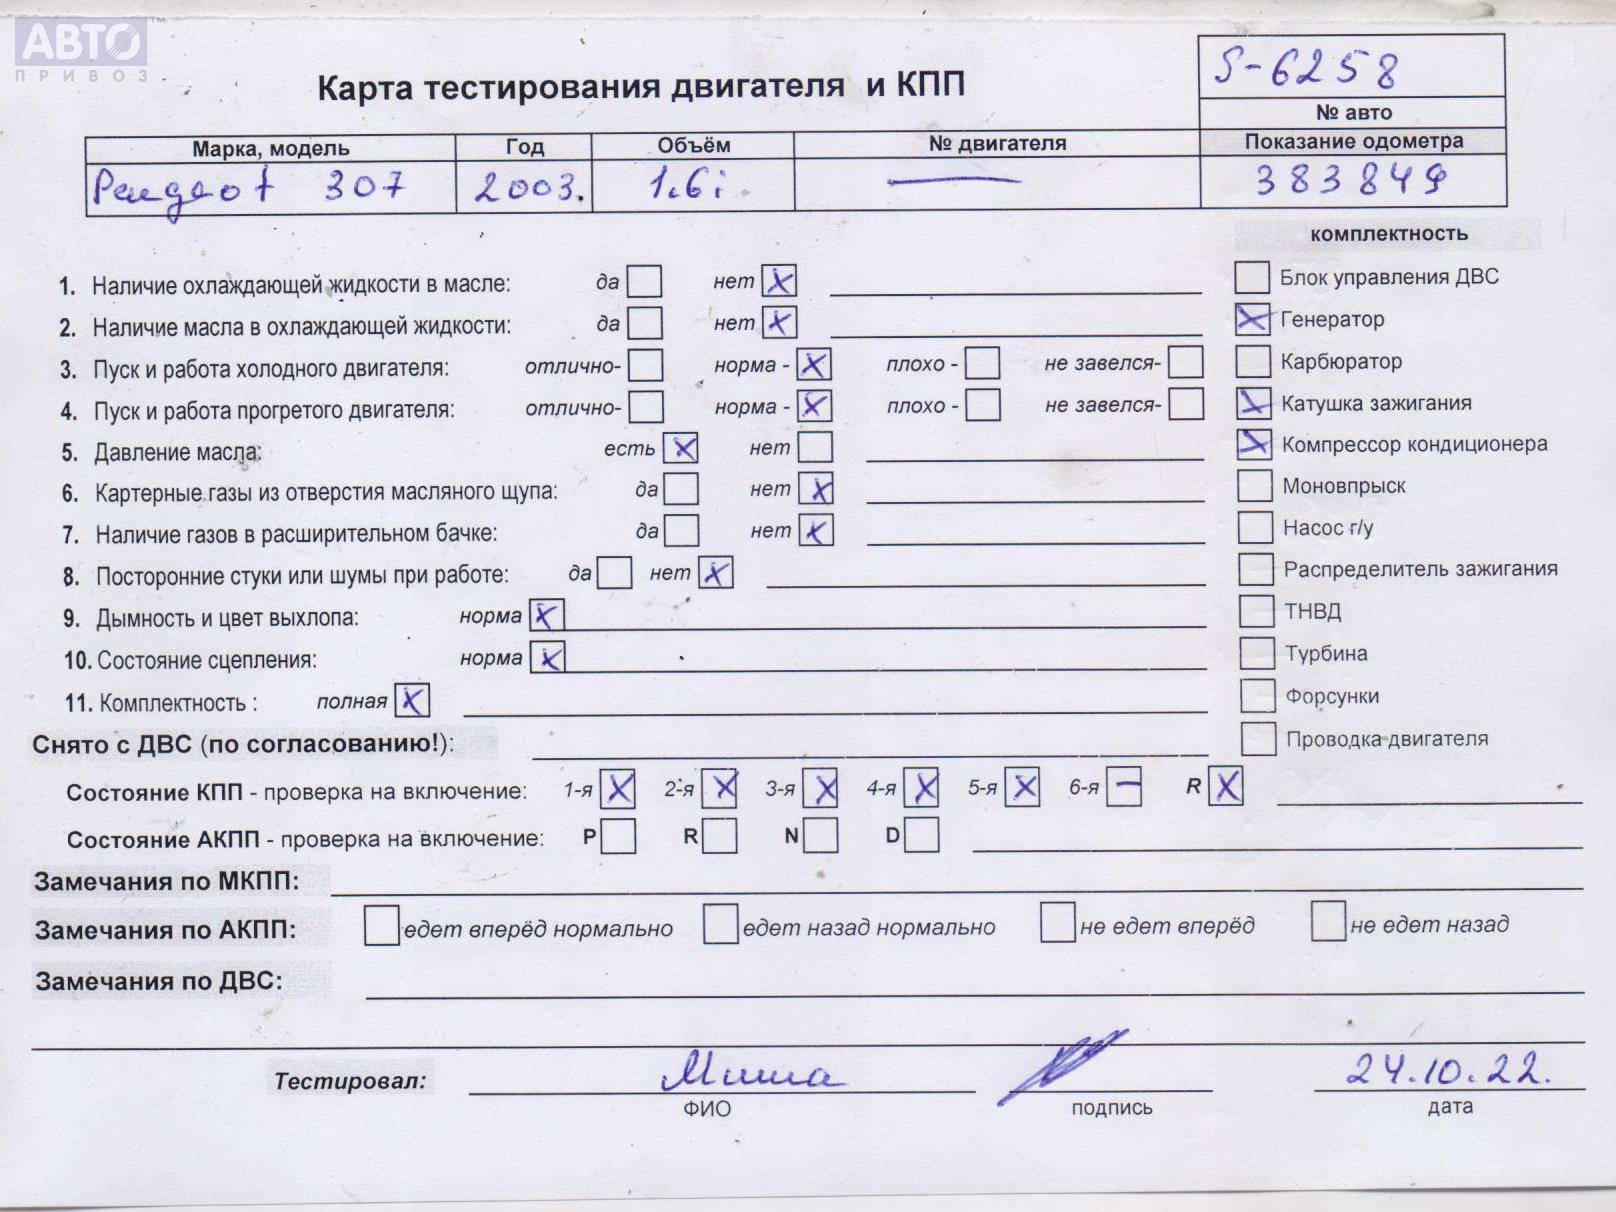 АВТО
ПРИВОЗ
S-6258
Карта тестирования двигателя и КПП
№ авто
Марка, модель Год Объём № двигателя Показание одометра
Peugeot 307 2003. 1.6i — 383849
комплектность
1. Наличие охлаждающей жидкости в масле: да нет X Блок управления ДВС
2. Наличие масла в охлаждающей жидкости: да нет X X Генератор
3. Пуск и работа холодного двигателя: отлично- норма - X плохо - не завелся- Карбюратор
4. Пуск и работа прогретого двигателя: отлично- норма - X плохо - не завелся- X Катушка зажигания
5. Давление масла: есть X нет X Компрессор кондиционера
6. Картерные газы из отверстия масляного щупа: да нет X Моновпрыск
7. Наличие газов в расширительном бачке: да нет X Насос г/у
8. Посторонние стуки или шумы при работе: да нет X Распределитель зажигания
9. Дымность и цвет выхлопа: норма X ТНВД
10. Состояние сцепления: норма X Турбина
11. Комплектность : полная X Форсунки
Снято с ДВС (по согласованию!): Проводка двигателя
Состояние КПП - проверка на включение: 1-я X 2-я X 3-я X 4-я X 5-я X 6-я — R X
Состояние АКПП - проверка на включение: P R N D
Замечания по МКПП:
Замечания по АКПП: едет вперёд нормально едет назад нормально не едет вперёд не едет назад
Замечания по ДВС:
Тестировал: Миша 24.10.22.
ФИО подпись дата